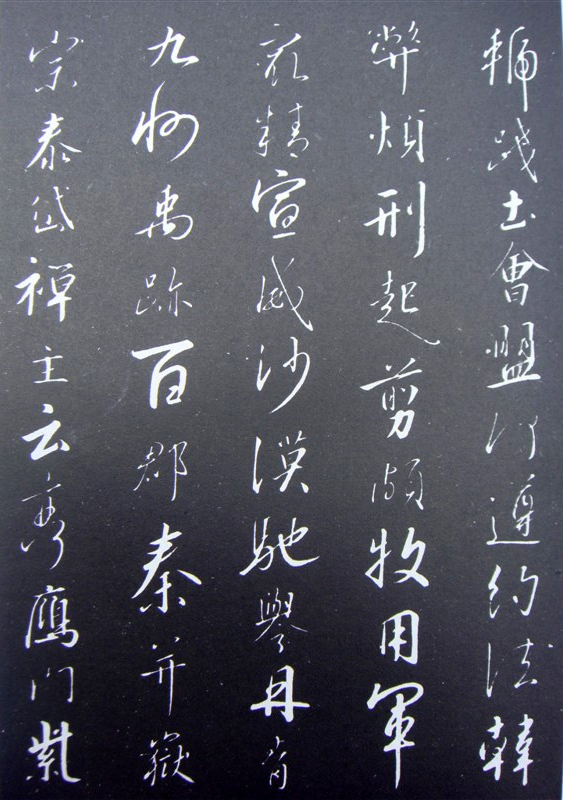 虢踐土會盟何遵約法韓
弊煩刑起剪頗牧用軍
最精宣威沙漠馳譽丹青
九州禹跡百郡秦并嶽
宗泰岱禪主云亭鴈門紫